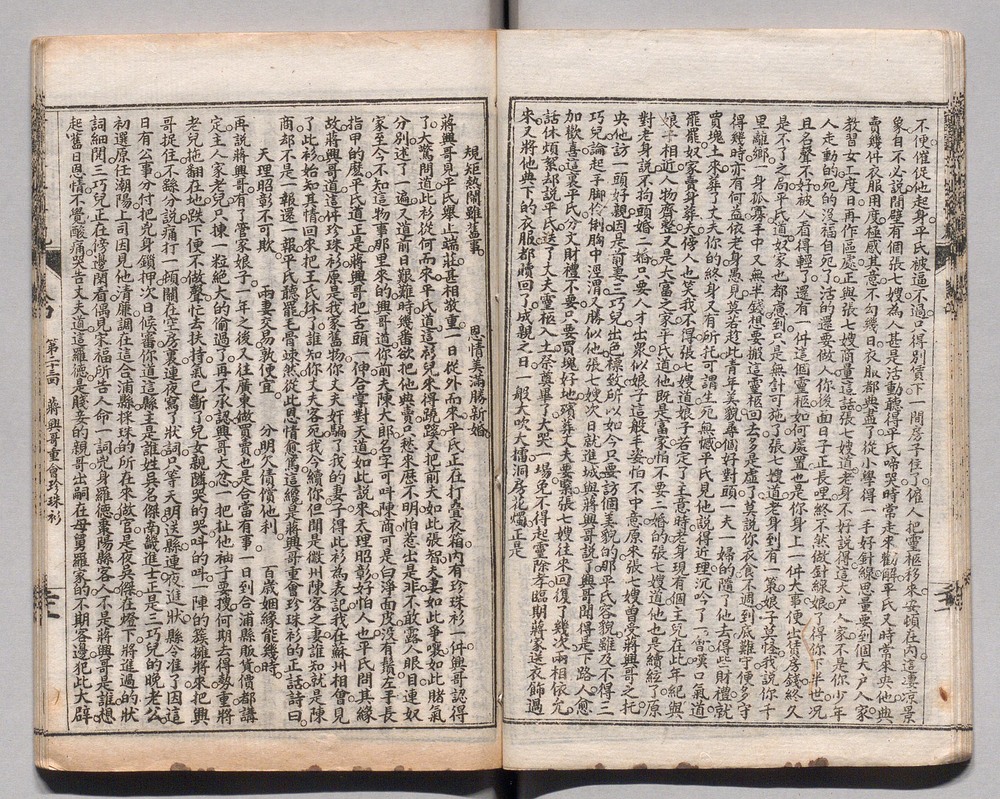 不便催促他起身平氏被逼不過只得別賃下一間房子住了僱人把靈柩移來安頓在內這凄凉景
象自不必說間壁有個張七嫂為人甚是活動聽得平氏啼哭時常走來勸解平氏又時常來央他典
賣幾件衣服用度極感其意不勾幾日衣服都典盡了從小學得一手好針線思量要到個大戶人家
教習女工度日再作區處正與張七嫂商量這話張七嫂道老身不好說得這大戶人家不是你少年
人走動的死的沒福自死了活的還要做人你後面日子正長哩終不然做針線娘了得你下半世况
且名聲不好被人看得輕了還有一件這個靈柩如何處置也是你身上一件大事便出賃房錢終久
是不了之局平氏道奴家也都慮到只是無計可施了張七嫂道老身到有一策娘子莫怪我說你千
里離鄉一身孤孀手中又無半錢想要搬這靈柩回去多是虛了莫說你衣食不週到底難守便多守
得幾時亦有何益依老身愚見莫若趁此青年美貌尋個好對頭一夫一婦的隨了他去得些財禮就
買塊土來葬了丈夫你的終身又有所托可謂生死無憾平氏見他說得近理沉吟了一會嘆口氣道
罷罷奴家賣身葬夫傍人也笑我不得張七嫂道娘子若定了主意時老身現有個主兒在此年紀與
娘子相近人物齊整又是大富之家平氏道他既是富家怕不要二婚的張七嫂道他也是續絃了原
對老身說不拘頭婚二婚只要人才出衆似娘子這般丰姿怕不中意原來張七嫂曾受蔣興哥之托
央他訪一頭好親因是前妻三巧兒出色標致所以如今只要訪個美貌的那平氏容貌雖及不得三
巧兒論起手脚伶俐胸中涇渭又勝似他張七嫂次日就進城與蔣興哥說了興哥聞得是下路人愈
加歡喜這裏平氏分文財禮不要只要買塊好地殯葬丈夫要緊張七嫂往來回復了幾次兩相依允
話休煩絮却說平氏送了丈夫靈柩入土祭奠畢了大哭一場免不得起靈除孝臨期蔣家送衣飾過
來又將他典下的衣服都贖回了成親之日一般大吹大擂洞房花燭正是
規矩熟閒雖舊事 恩情美滿勝新婚
蔣興哥見平氏舉止端莊甚相敬重一日從外而來平氏正在打疊衣箱內有珍珠衫一件興哥認得
了大驚問道此衫從何而來平氏道這衫兒來得蹺蹊又把前夫如此張智夫妻如此爭嚷如此賭氣
分別述了一遍又道前日艱難時幾番欲把他典賣只愁來歷不明怕惹出是非不敢露人眼目連奴
家至今不知這物事那里來的興哥道你前夫陳大郎名字可叫陳商可是白淨面皮沒有鬚左手長
指甲的麽平氏道正是蔣興哥把舌頭一伸合掌對天道如此說來天理昭彰好怕人也平氏問其緣
故蔣興哥道這件珍珠衫原是我家舊物你丈夫奸騙了我的妻子得此衫為表記我在蘇州相會見
了此衫始知其情回來把王氏休了誰知你丈夫客死我今續你但聞是徽州陳客之妻誰知就是陳
商却不是一報還一報平氏聽罷毛骨竦然從此恩情愈篤這纔是蔣興哥重會珍珠衫的正話詩曰
天理昭彰不可欺 兩妻交易孰便宜 分明欠債償他利 百歲姻緣能幾時
再說蔣興哥有了管家娘子一年之後又往廣東做買賣也是合當有事一日到合浦縣販珠價都講
定主人家老兒只揀一粒絶大的偷過了再不承認興哥大忿一把扯他袖子要搜何期去得勢重將
老兒拖翻在地跌下便不做聲忙去扶持氣已斷了兒女親隣哭的哭叫的叫一陣的簇擁將來把興
哥捉住不繇分說痛打一頓關在空房裏連夜寫了狀詞只等天明送縣連夜進狀縣令准了因這
日有公事分付把兇身鎖押次日候審你道這縣主是誰姓吳名傑南畿進士正是三巧兒的晚老公
初選原任潮陽上司因見他清廉調在這合浦縣採珠的所在來做官是夜吳傑在燈下將進過的狀
詞細閱三巧兒正在傍邊閒看偶見宋福所告人命一詞兇身羅德棗陽縣客人不是蔣興哥是誰想
起舊日恩情不覺酸痛哭告丈夫道這羅德是賤妾的親哥出嗣在母舅羅家的不期客邊犯此大辟
第二十三回 蔣興哥重會珍珠衫